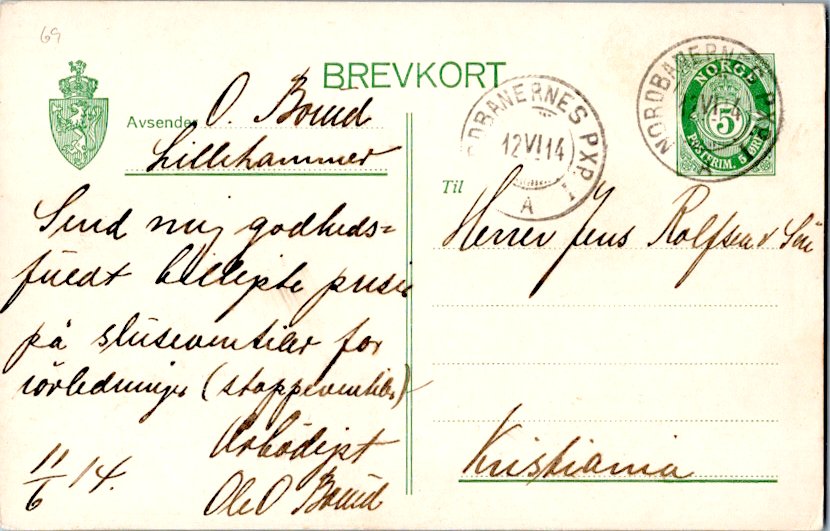 69
BREVKORT
Avsender O. Bound
Lillehammer
Send mig godheds=
fuldt billigste priser
på sluseventiler for
rörledninger (stoppeventiler)
Ærbödigst
Ole O Bound
11/6 14.
NORDBANERNES PXP I
12 VI 14
A
NORDBANERNES PXP I
12 VI 14
A
NORGE
5
POSTFRIM. 5 ØRE
Til
Herrer Jens Rolfsen & Sön
Kristiania